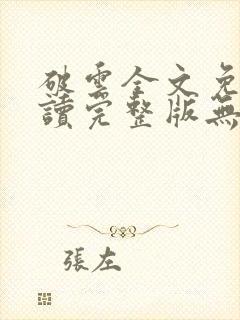 破雲全文免
讀完整版無
張左